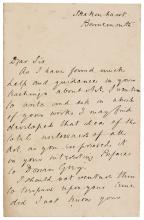 Bournemouth.
Dear Sir
As I have found much
help and guidance in your
teachings about Art, I venture
to write and ask in which
of your works I may find
developed that idea of the
total
of all
Art, as you
in your interesting Preface
to
I should not venture thus
to trespass upon your time
did I not know your